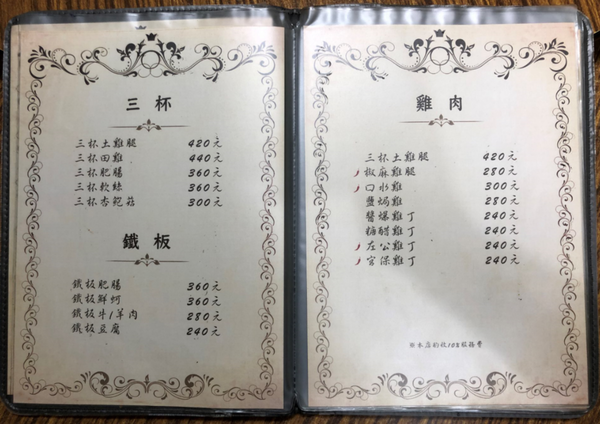 三杯
三杯土雞腿 420元
三杯田雞 440元
三杯肥腸 360元
三杯軟絲 360元
三杯杏鮑菇 300元
鐵板
鐵板肥腸 360元
鐵板鮮蚵 360元
鐵板牛/羊肉 280元
鐵板豆腐 240元
雞肉
三杯土雞腿 420元
椒麻雞腿 280元
口水雞 300元
鹽焗雞 280元
醬爆雞丁 240元
糖醋雞丁 240元
左公雞丁 240元
宮保雞丁 240元
※本店酌收10%服務費